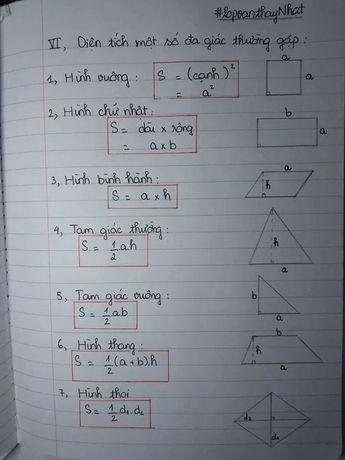 #lopoanthayNhat
VI, Diện tích một số đa giác thường gặp:
1, Hình vuông: S = (cạnh)²
= a²
a
a
2, Hình chữ nhật:
S = dài x rộng
= a x b
b
a
3, Hình bình hành:
S = a x h
a
h
4, Tam giác thường:
S = 1/2 ah
h
a
5, Tam giác vuông:
S = 1/2 ab
b
a
6, Hình thang:
S = 1/2 (a+b).h
b
h
a
7, Hình thoi
S = 1/2 d₁.d₂
d₂
d₁